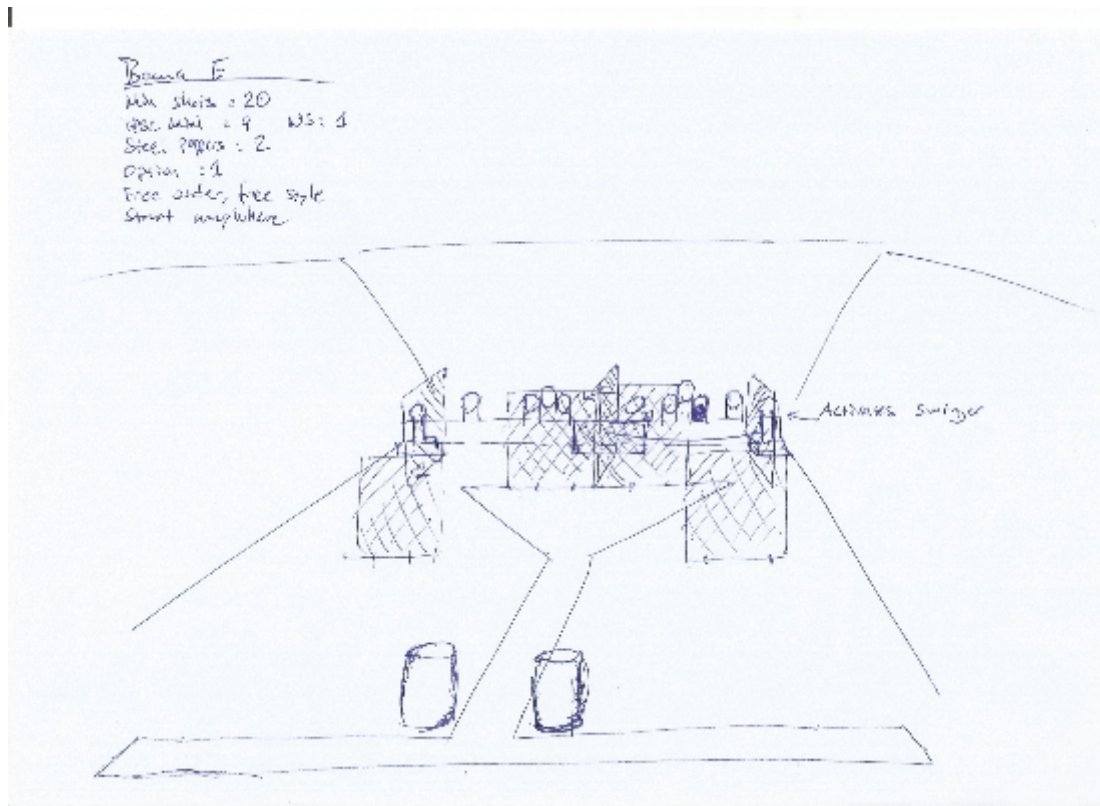 E
Min shots : 20
IPSC mini : 9 NS: 1
Steel Poppers : 2
: 1
Free order, free style
Start anywhere
Activates Swinger